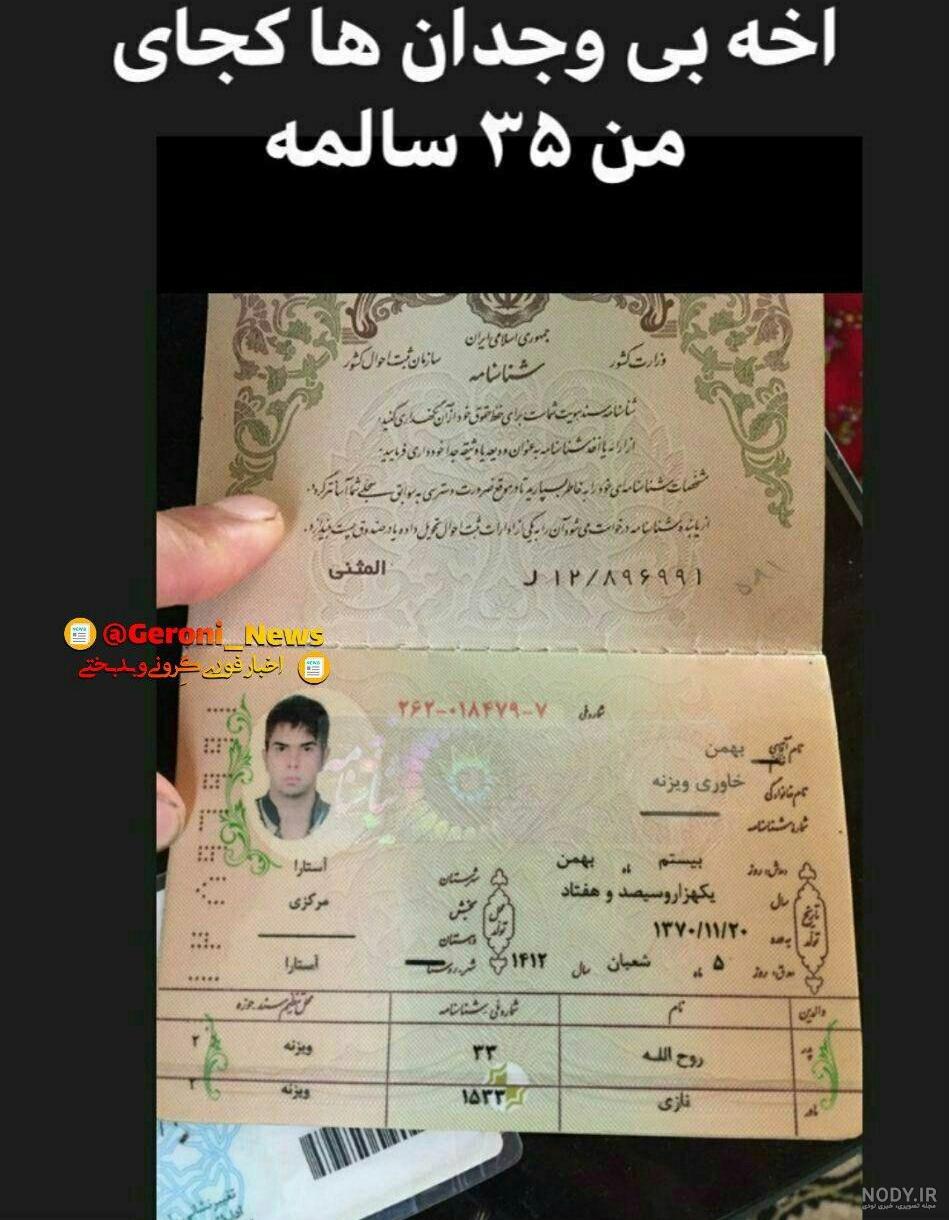 اخه بی وجدان ها کجای
من ۳۵ سالمه
جمهوری اسلامی ایران
وزارت کشور
سازمان ثبت احوال کشور
شناسنامه
شناسنامه سند هویت شماست برای حفظ حقوق خود از آن نگهداری کنید.
از ارائه یا اخذ شناسنامه به عنوان ودیعه یا وثیقه جدا خودداری فرمایید.
مشخصات شناسنامه‌ای خود را به خاطر بسپارید تا در موقع ضرورت دسترسی به سوابق سجلی شما آسانتر گردد.
از یابنده شناسنامه درخواست می شود آن را به یکی از ادارات ثبت احوال تحویل داده یا در صندوق پست بیندازد.
المثنی
ل ۱۲/۸۹۶۹۹۱
@Geroni_News
اخبار فوری گرونی و بدبختی
شماره ملی ۲۶۲-۰۱۸۴۷۹-۷
نام آقای بهمن
نام خانوادگی خاوری ویزنه
شماره شناسنامه
تاریخ تولد
روز بیستم ماه بهمن
سال یکهزاروسیصد و هفتاد
۱۳۷۰/۱۱/۲۰
روز ۵ ماه شعبان سال ۱۴۱۲
محل تولد
شهرستان آستارا
بخش مرکزی
دهستان
شهر آستارا
والدین نام شماره ملی شناسنامه محل تنظیم سند حوزه
پدر روح الله ۳۳ ویزنه ۲
مادر نازی ۱۵۳۳ ویزنه ۲
NODY.IR
مجله تصویری، خبری نودی